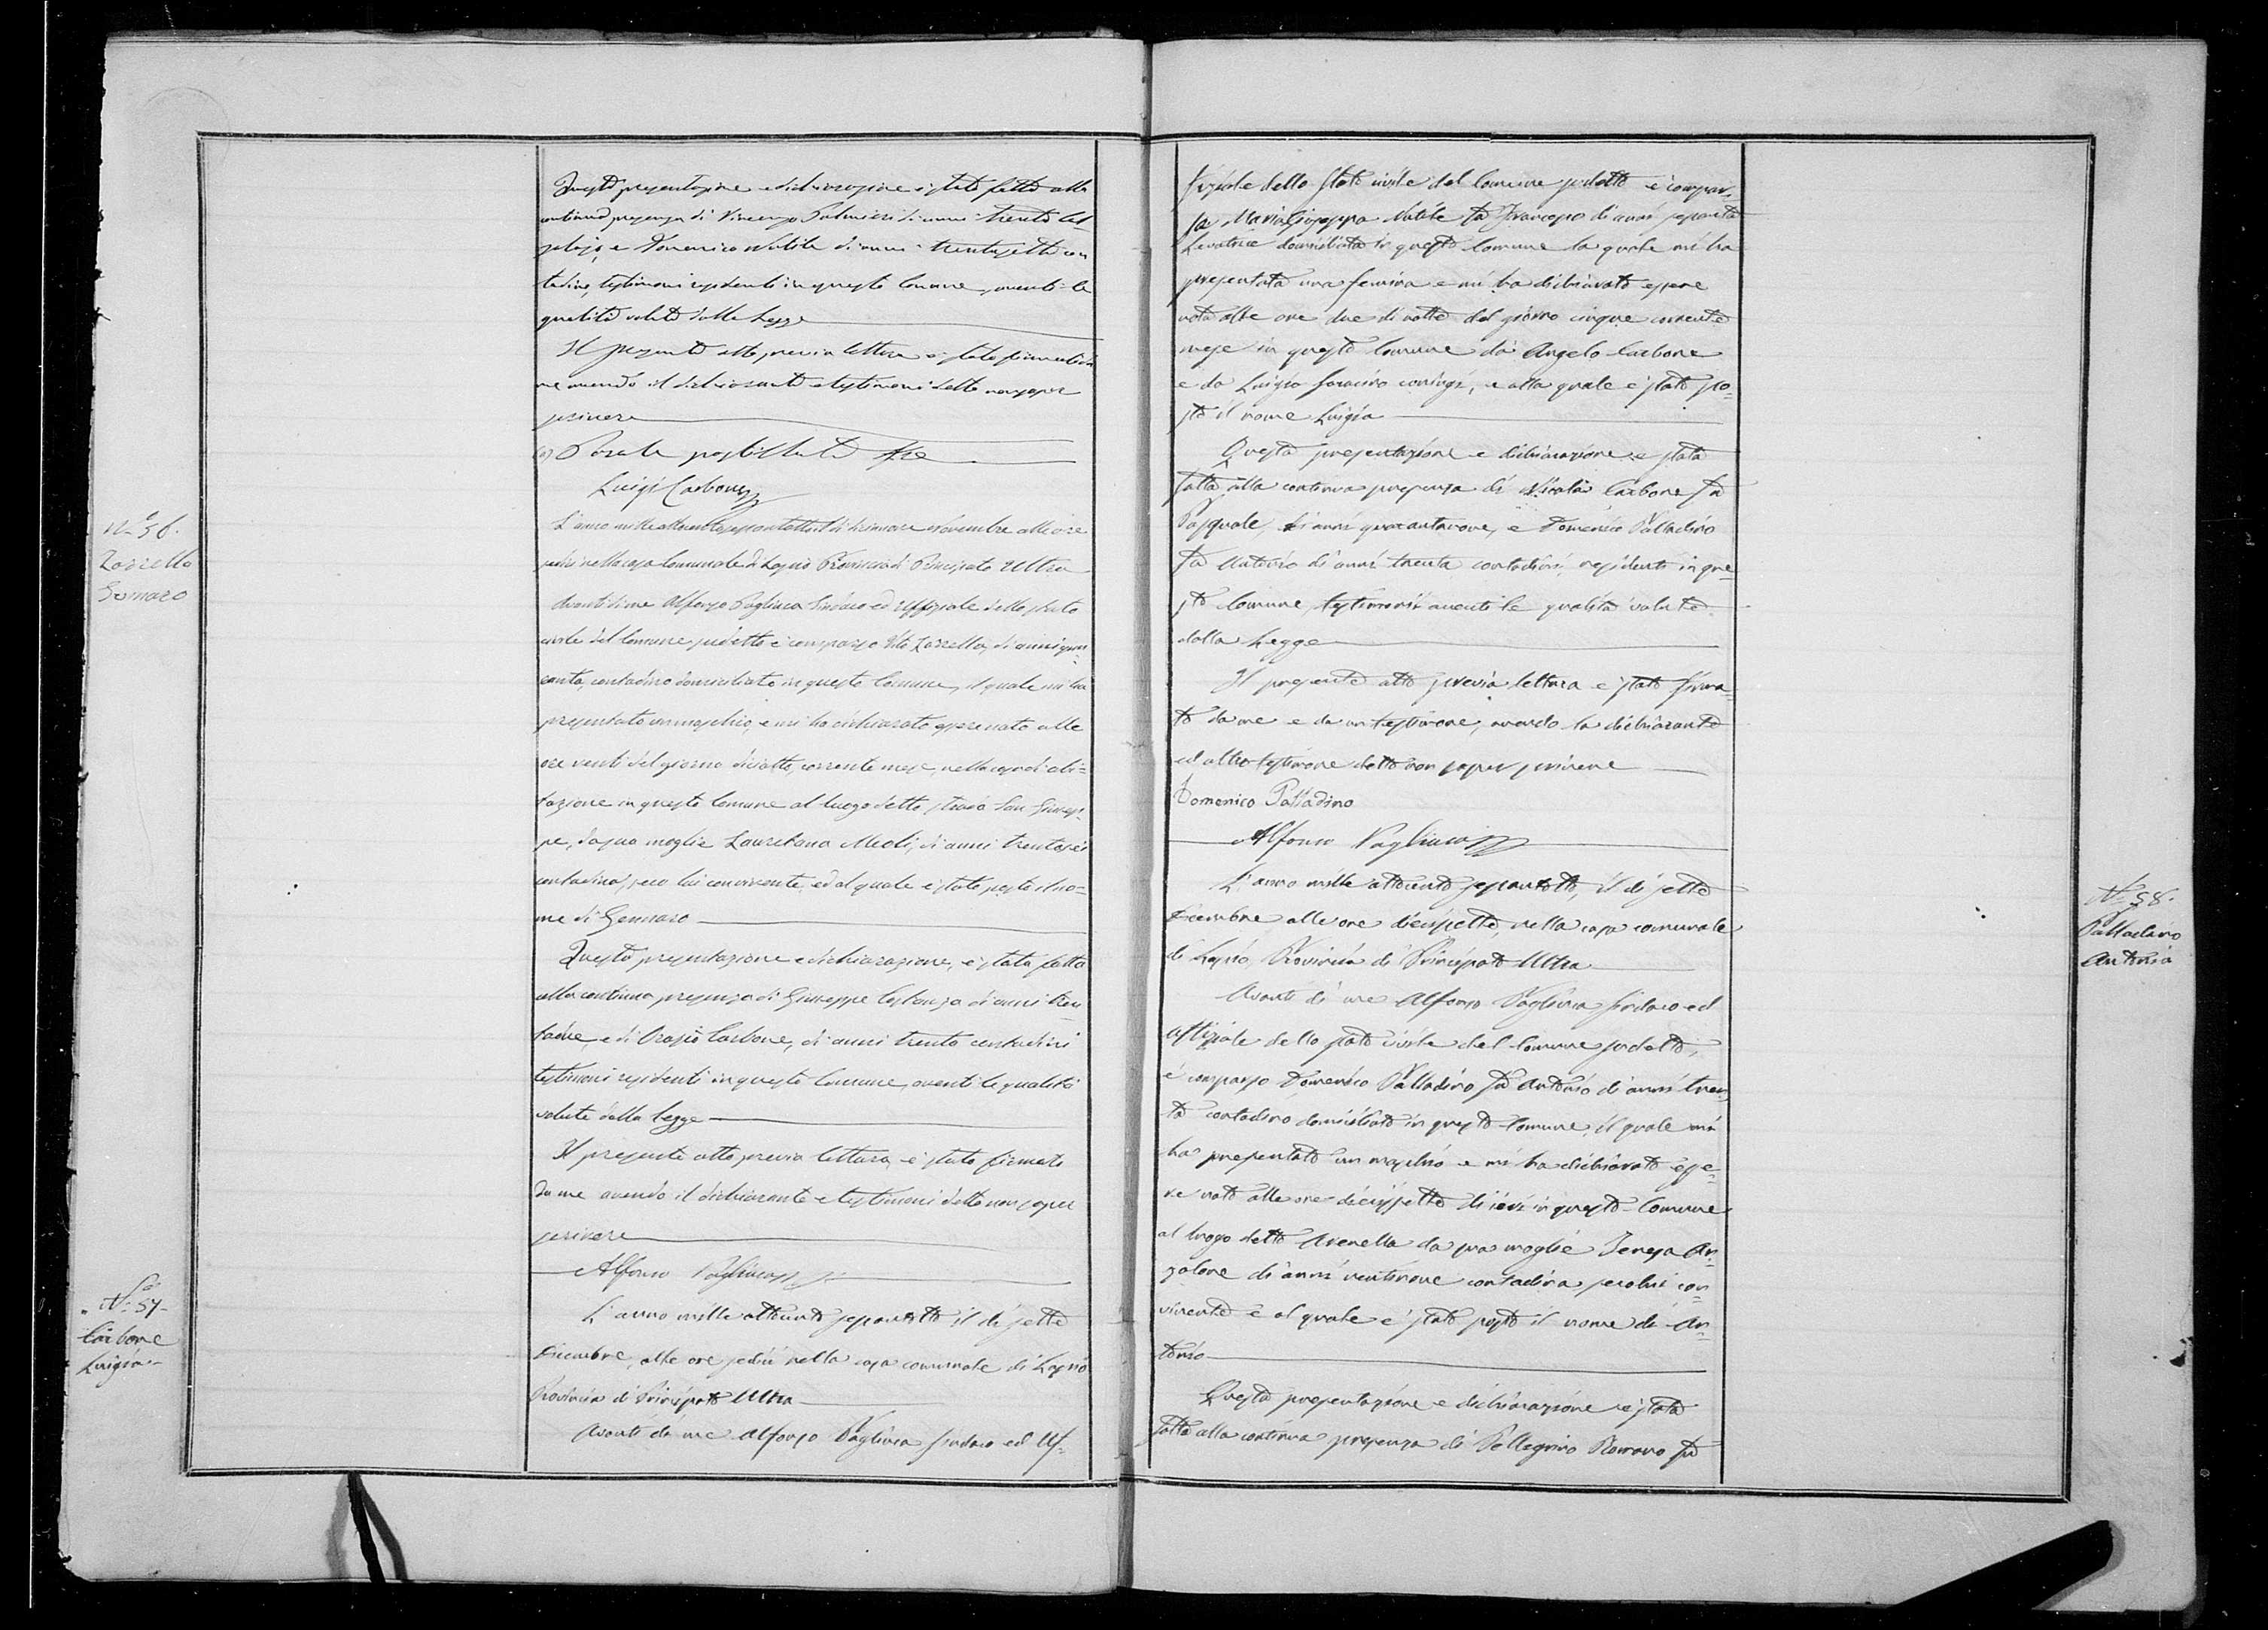 Questa presentazione e dichiarazione è stata fatta alla
continua presenza di Vincenzo Palmieri di anni trenta cal-
zolajo, e Domenico Nubile di anni trentasette con
tadino, testimoni residenti in questo Comune, aventi le
qualità volute dalla Legge
Il presente atto previa lettura è stato firmato da
me avendo il dichiarante e testimoni detto non saper
scrivere
Luigi Carbone
N.º 56.
Zarrella
Gennaro
L'anno mille ottocento sessantotto il dì diciannove novembre alle ore
sedici nella casa Comunale di Lapio Provincia di Principato Ultra
Avanti di me Alfonso Pagliuca Sindaco ed Uffiziale dello stato
civile del Comune sudetto è comparso Vito Zarrella, di anni qua
ranta, contadino domiciliato in questo Comune, il quale mi ha
presentato un maschio, e mi ha dichiarato esser nato alle
ore venti del giorno diciotto, corrente mese, nella casa di abi=
tazione in questo Comune al luogo detto strada San Giusep-
pe, da sua moglie Lauretana Meoli, di anni trentasei
contadina, seco lui convivente, ed al quale è stato posto il no=
me di Gennaro
Questa presentazione e dichiarazione, è stata fatta
alla continua presenza di Giuseppe Costanza di anni tren
tadue, e di Orazio Carbone, di anni trenta contadini
testimoni residenti in questo Comune, aventi le qualità
volute dalla legge
Il presente atto previa lettura, è stato firmato
da me avendo il dichiarante e testimoni detto non saper
scrivere
Alfonso Pagliuca
N.º 57.
Carbone
Luigia
L'anno mille ottocento sessantotto il dì sette
Dicembre, alle ore sedici nella casa comunale di Lapio
Provincia di Principato Ultra
Avanti di me Alfonso Pagliuca Sindaco ed Uf=
fiziale dello Stato civile del Comune sudetto è compar=
sa Maria Giuseppa Nubile fu Francesco di anni sessanta
Levatrice domiciliata in questo Comune la quale mi ha
presentata una femina e mi ha dichiarato essere
nata alle ore due di notte del giorno cinque corrente
mese in questo Comune da Angelo Carbone
e da Luigia Saracino coniugi, e alla quale è stato po=
sto il nome Luigia
Questa presentazione e dichiarazione e stata
fatta alla continua presenza di Nicola Carbone fu
Pasquale, di anni quarantanove, e Domenico Palladino
fu Antonio di anni trenta contadini, residenti in que=
sto Comune, testimonii aventi le qualità volute
dalla Legge
Il presente atto previa lettura è stato firma=
to da me e da un testimone, avendo la dichiarante
ed altro testimone detto non saper scrivere
Domenico Palladino
Alfonso Pagliuca
N.º 58.
Palladino
Antonio
L'anno mille ottocento sessantotto, il dì sette
Dicembre alle ore diecisette, nella casa comunale
di Lapio, Provincia di Principato Ultra
Avanti di me Alfonso Pagliuca Sindaco ed
Uffiziale dello stato civile del Comune sudetto,
è comparso Domenico Palladino fu Antonio di anni tren
ta contadino domiciliato in questo Comune, il quale mi
ha presentato un maschio e mi ha dichiarato esse=
re nato alle ore diecissette di ieri in questo Comune
al luogo detto Arenella da sua moglie Teresa An=
zalone di anni ventinove contadina secolui con=
vivente e al quale è stato posto il nome di An=
tonio
Questa presentazione e dichiarazione è stata
fatta alla continua presenza di Pellegrino Romano fu